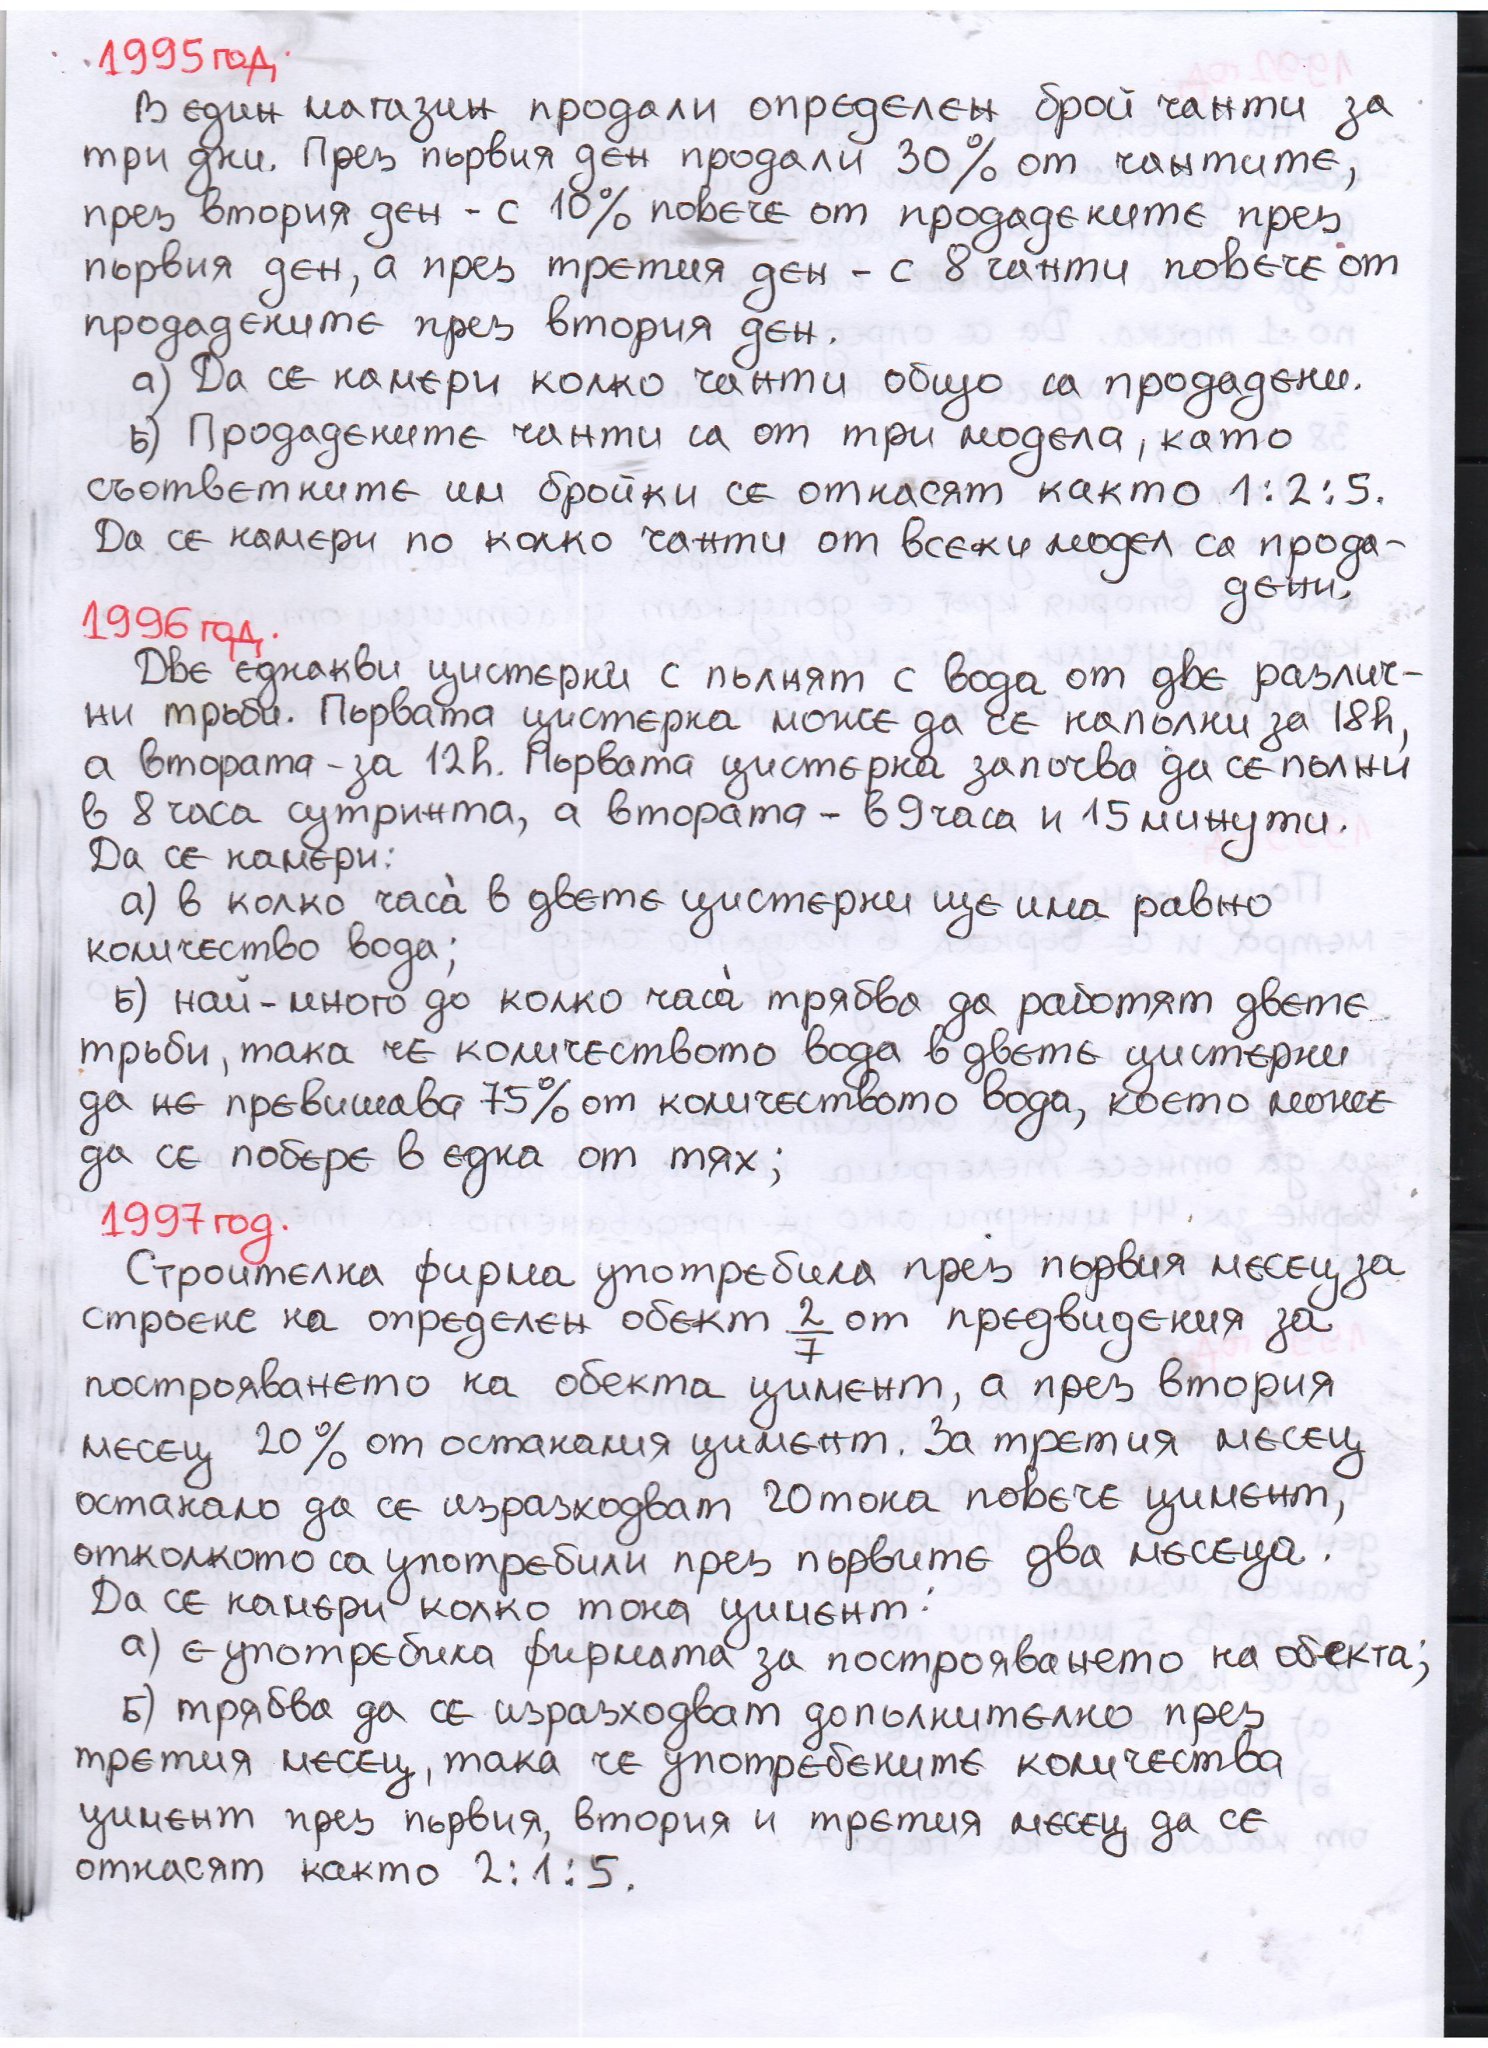 1995 год.
В един магазин продали определен брой чанти за
три дни. През първия ден продали 30% от чантите,
през втория ден - с 10% повече от продадените през
първия ден, а през третия ден - с 8 чанти повече от
продадените през втория ден.
а) Да се намери колко чанти общо са продадени.
Б) Продадените чанти са от три модела, като
съответните им бройки се отнасят както 1:2:5.
Да се намери по колко чанти от всеки модел са прода-
дени.
1996 год.
Две еднакви цистерни с пълнят с вода от две различ-
ни тръби. Първата цистерна може да се напълни за 18h,
а втората - за 12h. Първата цистерна започва да се пълни
в 8 часа сутринта, а втората - в 9 часа и 15 минути.
Да се намери:
а) в колко часа̀ в двете цистерни ще има равно
количество вода;
Б) най-много до колко часа̀ трябва да работят двете
тръби, така че количеството вода в двете цистерни
да не превишава 75% от количеството вода, което може
да се побере в една от тях;
1997 год.
Строителна фирма употребила през първия месец за
строене на определен обект 2/7 от предвидения за
построяването на обекта цимент, а през втория
месец 20% от останалия цимент. За третия месец
останало да се изразходват 20 тона повече цимент,
отколкото са употребили през първите два месеца.
Да се намери колко тона цимент:
а) е употребила фирмата за построяването на обекта;
Б) трябва да се изразходват допълнително през
третия месец, така че употребените количества
цимент през първия, втория и третия месец да се
отнасят както 2:1:5.